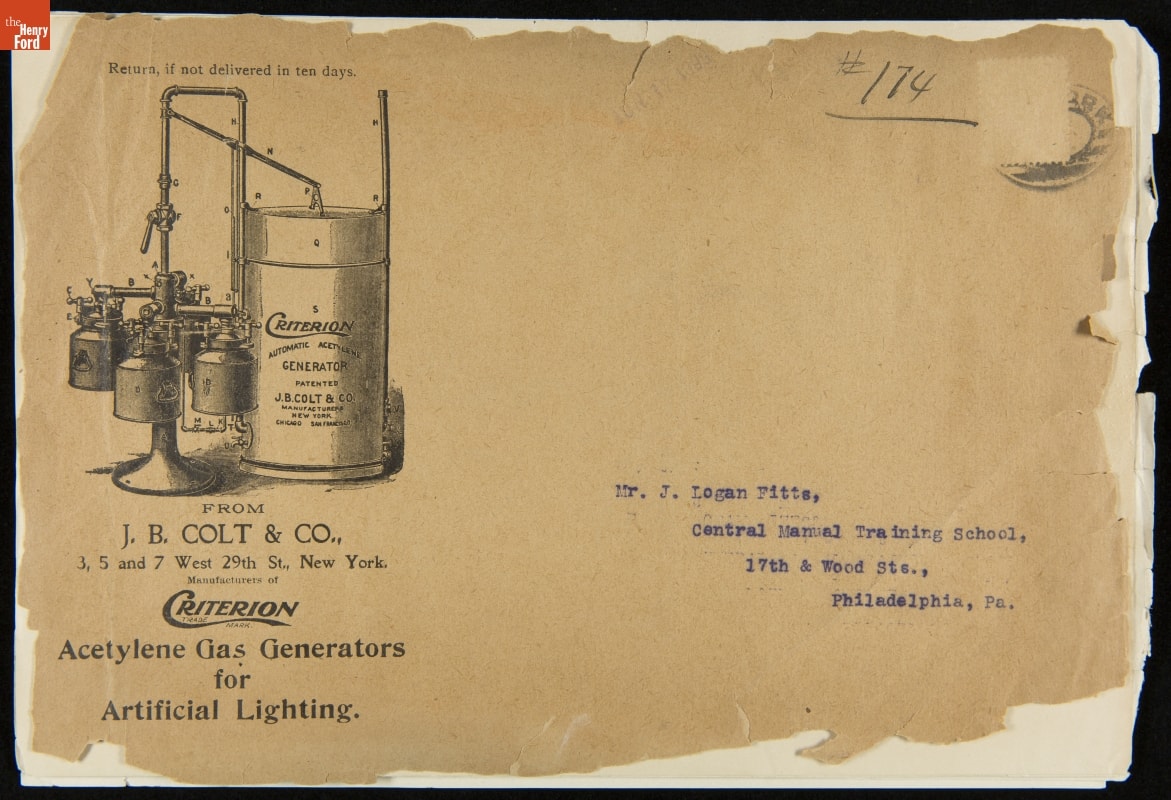 the
Henry
Ford
Return, if not delivered in ten days.
#174
CRITERION
AUTOMATIC ACETYLENE
GENERATOR
PATENTED
J.B. COLT & CO.
MANUFACTURERS
NEW YORK
CHICAGO SAN FRANCISCO
FROM
J. B. COLT & CO.,
3, 5 and 7 West 29th St., New York.
Manufacturers of
CRITERION
TRADE MARK.
Acetylene Gas Generators
for
Artificial Lighting.
Mr. J. Logan Fitts,
Central Manual Training School,
17th & Wood Sts.,
Philadelphia, Pa.